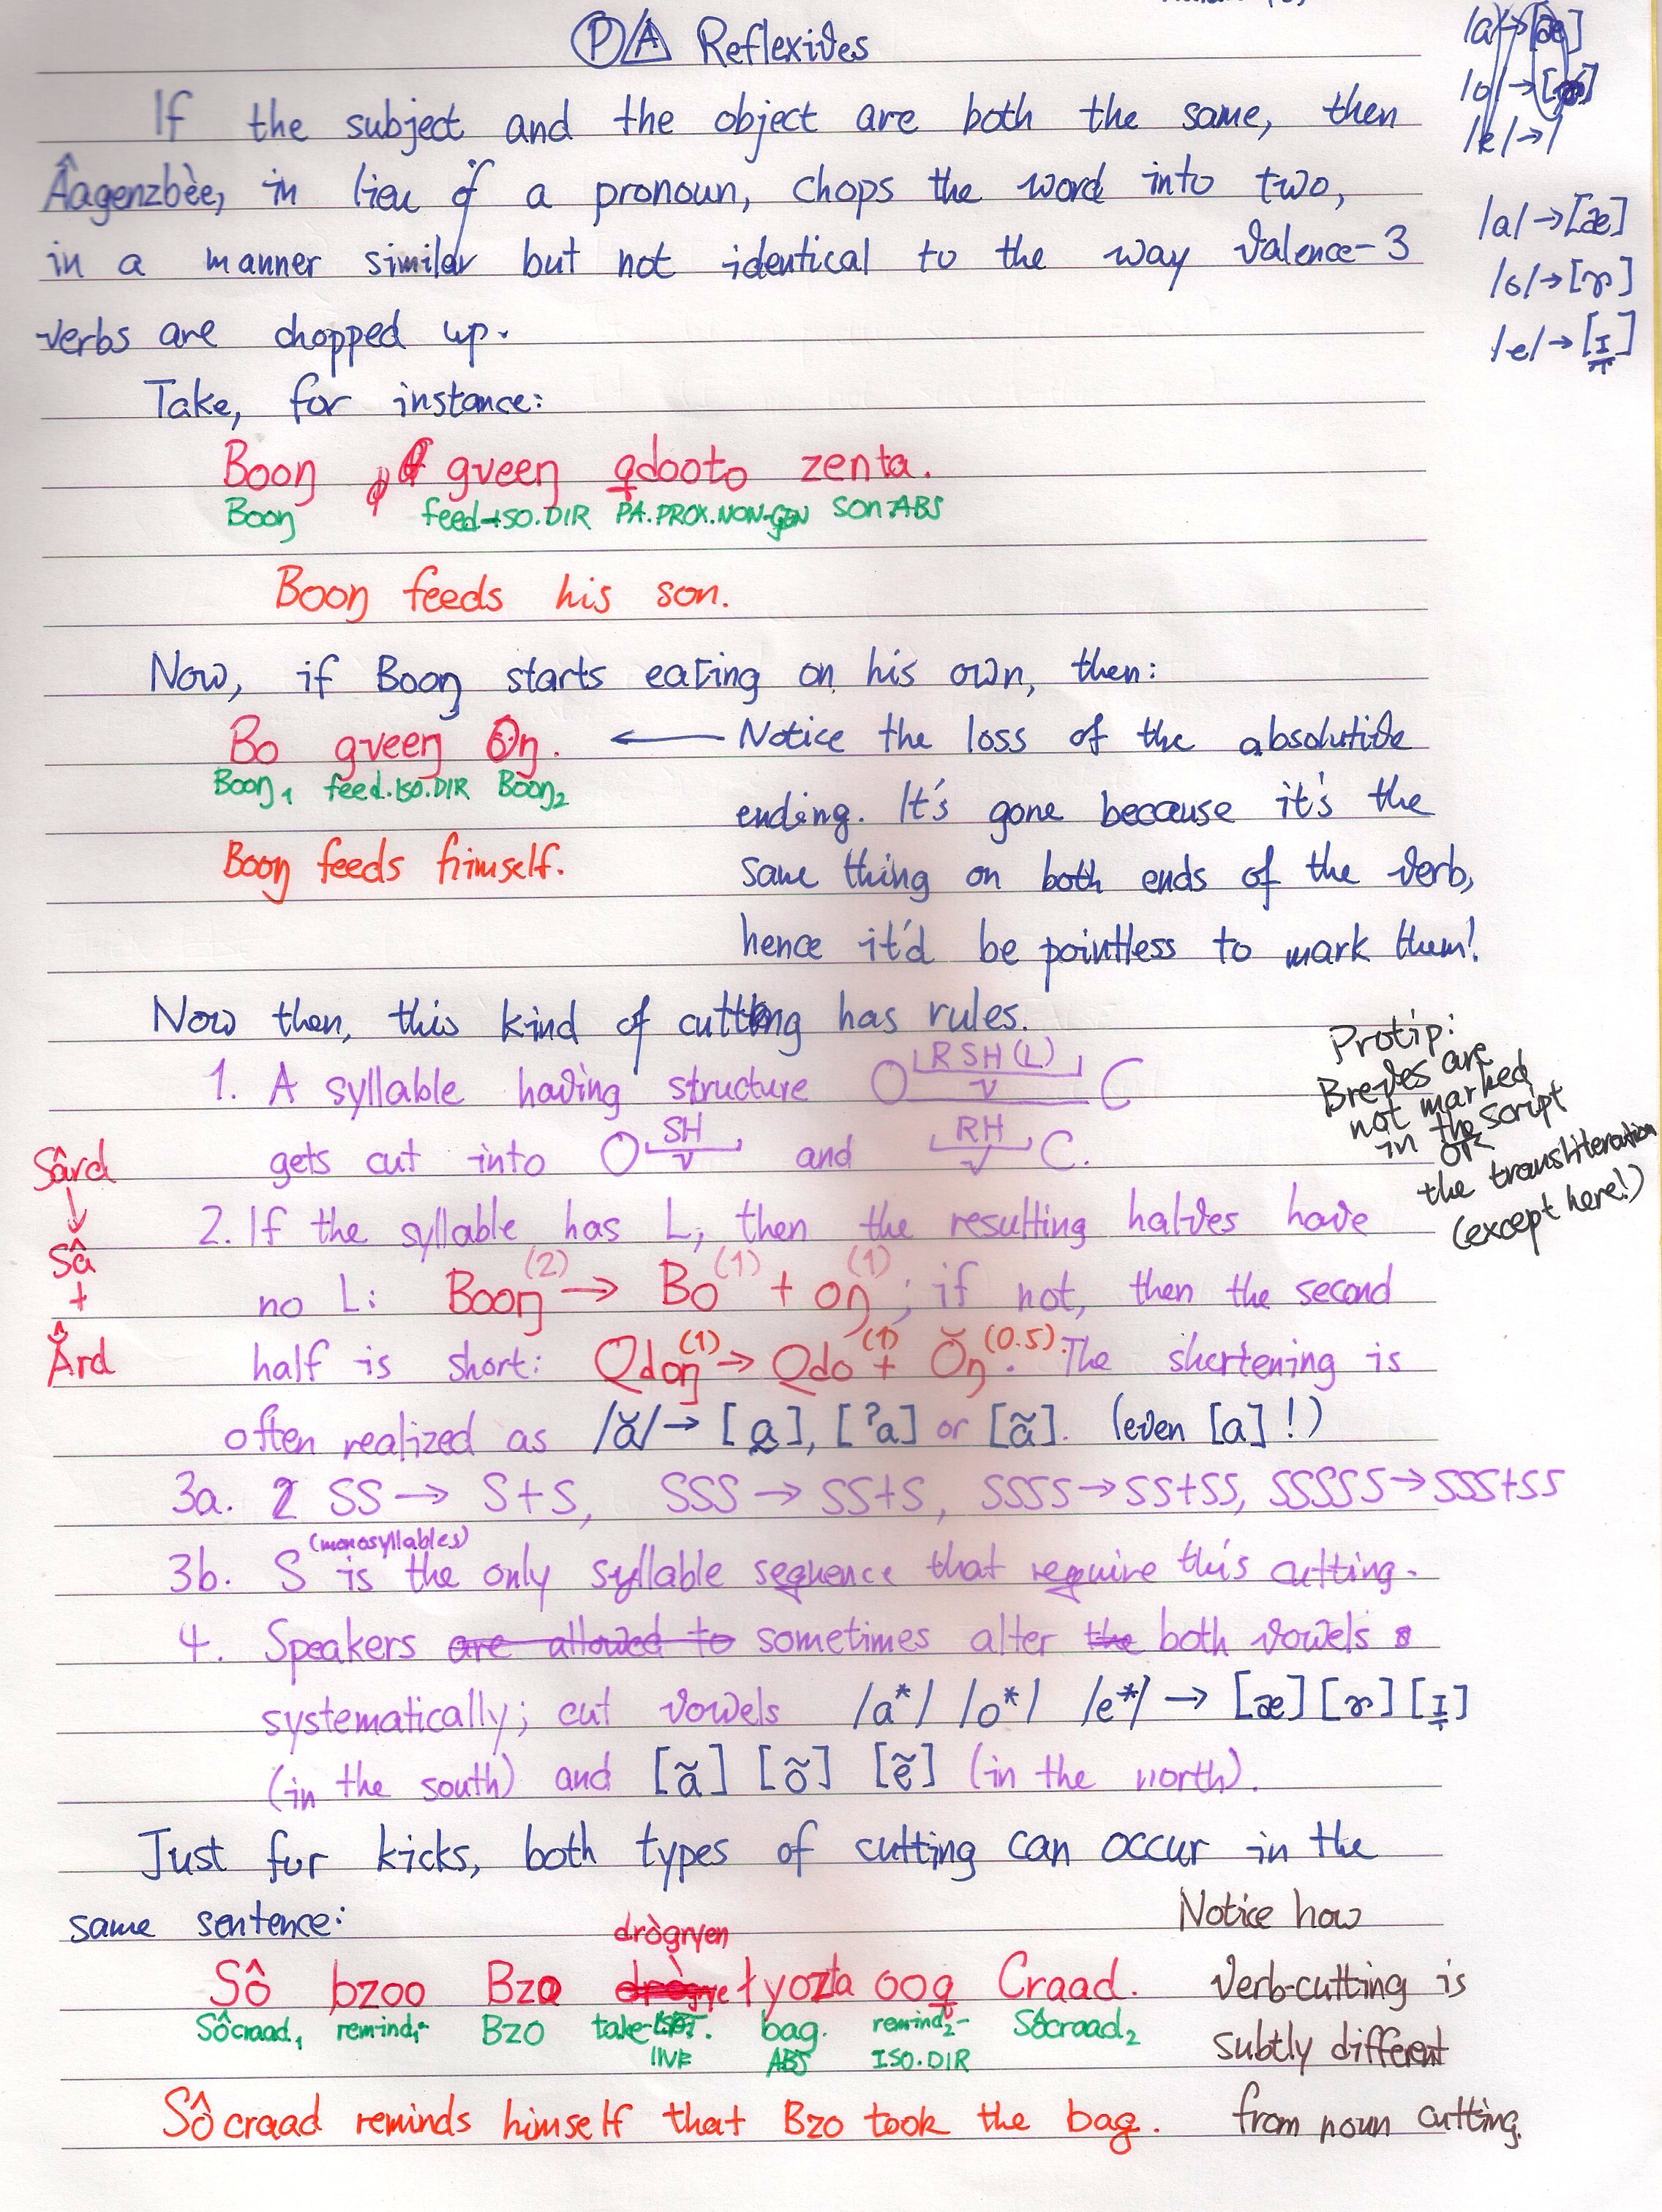 P/A Reflexives
If the subject and the object are both the same, then
Âagenzbèe, in lieu of a pronoun, chops the word into two,
in a manner similar but not identical to the way valence-3
verbs are chopped up.
Take, for instance:
Booŋ gveeŋ qdooto zenta.
Booŋ feed-ISO.DIR PA.PROX.NON-GEN son-ABS
Booŋ feeds his son.
Now, if Booŋ starts eating on his own, then:
Bo gveeŋ Oŋ. ← Notice the loss of the absolutive
Booŋ₁ feed.ISO.DIR Booŋ₂
ending. It's gone because it's the
Booŋ feeds himself.
same thing on both ends of the verb,
hence it'd be pointless to mark them!
Now then, this kind of cutting has rules.
1. A syllable having structure O RSH(L) V C
gets cut into O SH V and RH V C.
2. If the syllable has L, then the resulting halves have
no L: Booŋ (2) → Bo (1) + oŋ (1); if not, then the second
half is short: Qdoŋ (1) → Qdo (1) + Ŏŋ (0.5). The shortening is
often realized as /ă/ → [a̰], [ˀa] or [ã]. (even [a]!)
3a. SS → S+S, SSS → SS+S, SSSS → SS+SS, SSSSS → SSS+SS
3b. S (monosyllables) is the only syllable sequence that require this cutting.
4. Speakers are allowed to sometimes alter the both vowels
systematically; cut vowels /a*/ /o*/ /e*/ → [æ] [ɤ] [ɪ̞]
(in the south) and [ã] [õ] [ẽ] (in the north).
Just for kicks, both types of cutting can occur in the
same sentence:
drògryen
Sô bzoo Bzo łyozta ooq Craad.
Sôcraad₁ remind₁- BZO take- bag. remind₂- Sôcraad₂
INV ABS ISO.DIR
Sôcraad reminds himself that Bzo took the bag.
Notice how
verb-cutting is
subtly different
from noun cutting.
/a/→[æ]
/o/→
/e/→/
/a/→[æ]
/o/→[ɤ]
/e/→[ɪ̞]
Protip:
Breves are
not marked
in the script
OR
the transliteration
(except here!)
Sârd
↓
Sâ
+
Ârd